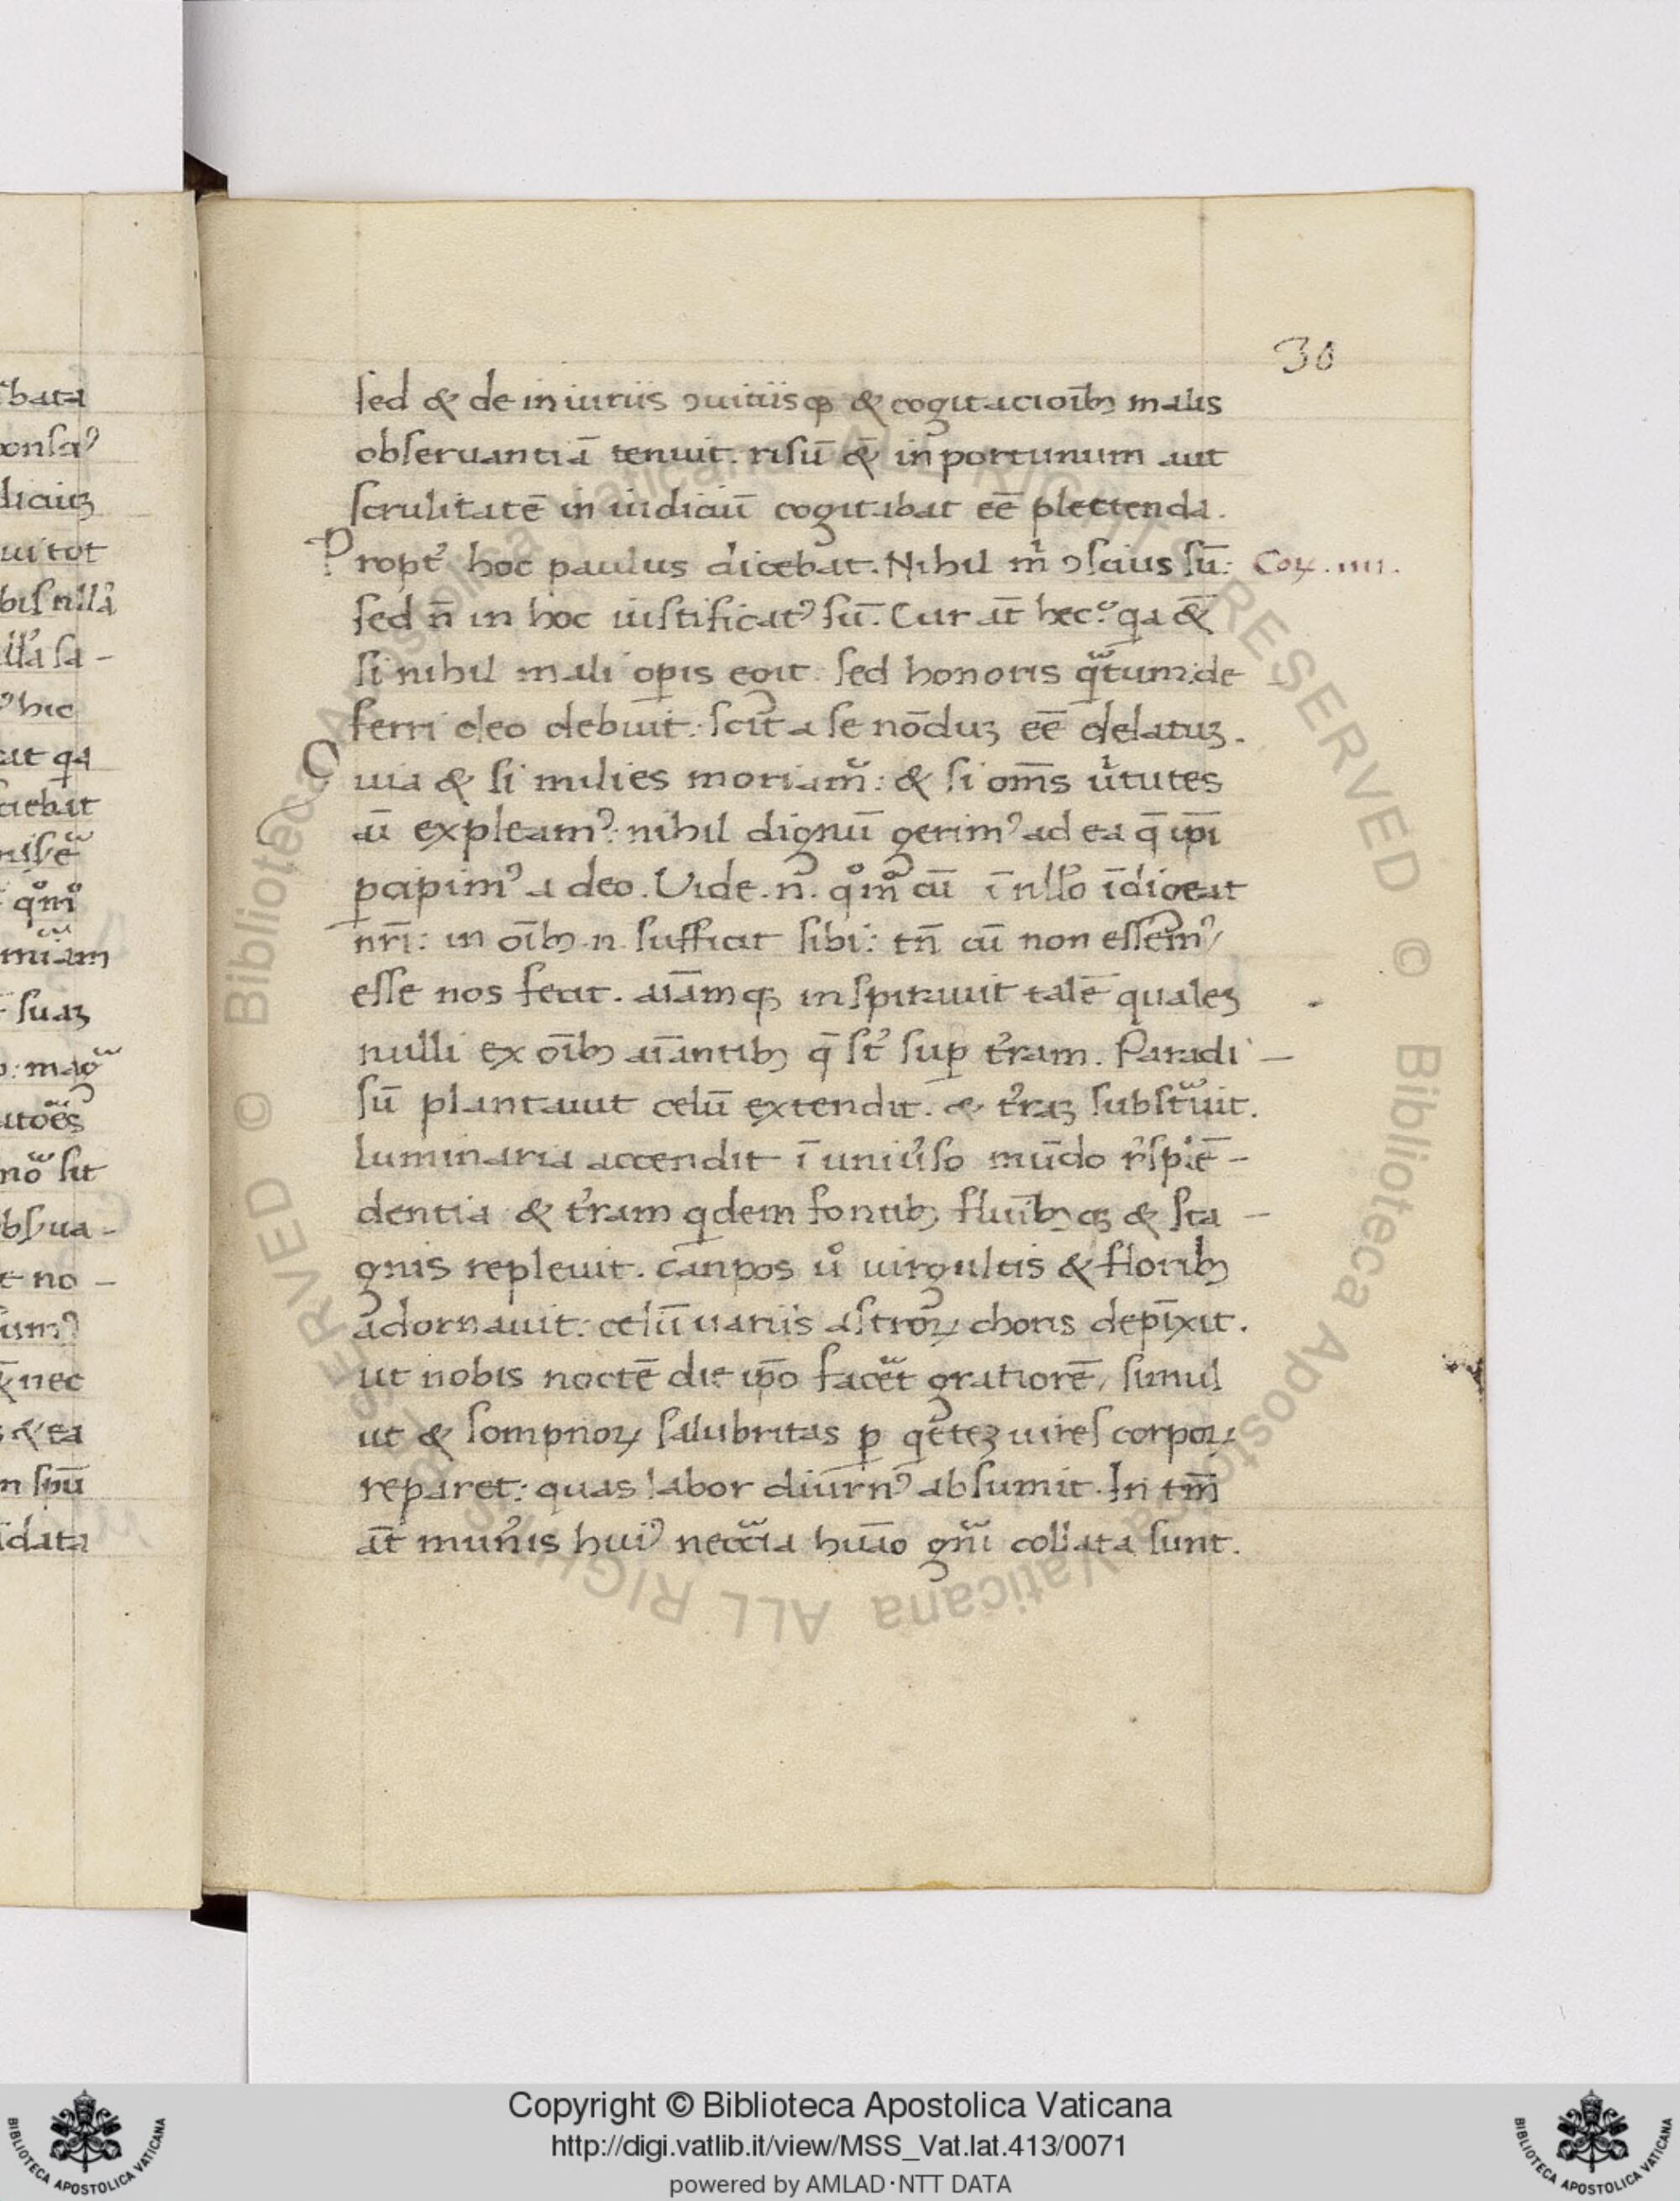 30
sed & de iniuriis ɔuitiisqꝫ & cogitacioībꝫ malis
obseruantiā tenuit. risū & inportunum aut
scrulitatē in iudiciū cogitabat eē plectenda.
Propt᷒ hoc paulus dicebat. Nihil m̄ ɔscius sū: Coꝝ. iiii.
sed n̄ in hoc iustificatꝰ sū. Cur aūt hec? qa &
si nihil mali opis egit sed honoris qͣtum de
ferri deo debuit: scit a se nōduꝫ eē delatuꝫ.
Quia & si milies moriamr̄: & si om̄s uͥtutes
aī expleamꝰ: nihil dignū gerimꝰ ad ea q̄ ip̄i
pcipimꝰ a deo. Uide .n̄. qm̄ cū ī nllͦo īdigeat
nr̄i: in oībꝫ .n. sufficit sibi: tn̄ cū non essemꝰ/
esse nos fecit. aīamqꝫ inspirauit talē qualeꝫ
nulli ex oībꝫ aīantibꝫ q̄ st᷒ sup t᷒ram. Paradi -
sū plantauit celū extendit. & t᷒raꝫ substͣuit.
luminaria accendit ī uniu᷒so mūdo r᷒spiē -
dentia & t᷒ram qdem fontibꝫ fluībꝫqꝫ & sta -
gnis repleuit. canpos uͦ uirgultis & floribꝫ
adornauit: celū uariis astroꝝ choris depīxit.
ut nobis noctē die ip̄o facͤet gratiorē, simul
ut & sompnoꝝ salubritas ꝑ qͥeteꝫ uires corpoꝝ
reparet: quas labor diurnꝰ absumit. In tm̄
āt mun᷒is huiꝰ neccͣia huāo gn̄i collata sunt.
Copyright © Biblioteca Apostolica Vaticana
http://digi.vatlib.it/view/MSS_Vat.lat.413/0071
powered by AMLAD·NTT DATA